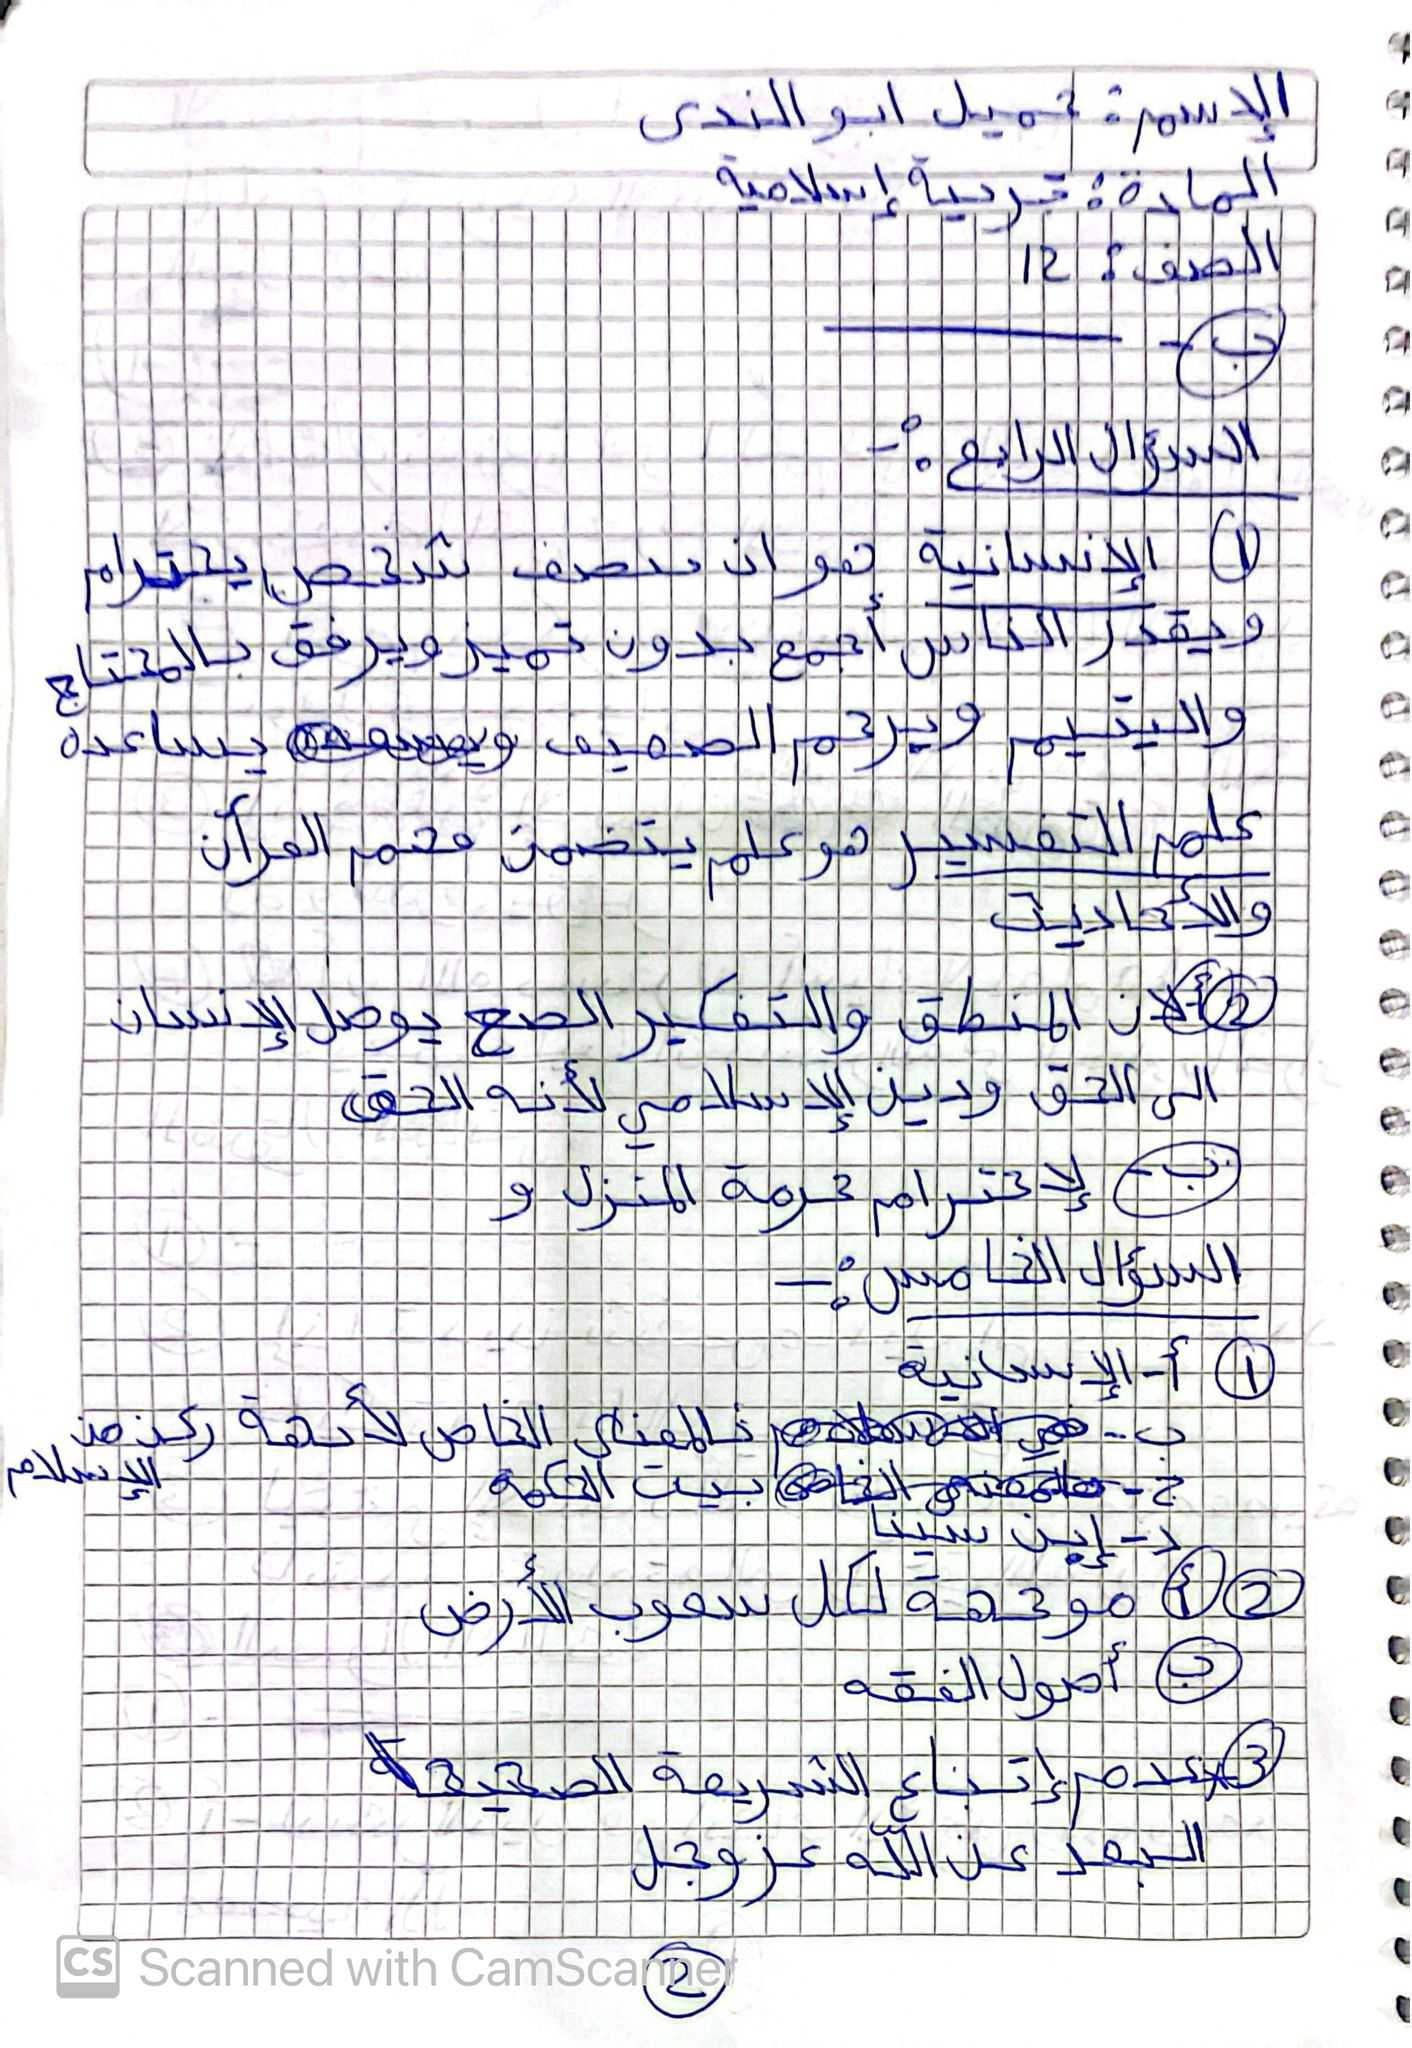 الإسم: جميل ابو الندى
المادة: تربية إسلامية
الصف: 12
ب -
السؤال الرابع :-
① الإنسانية هو ان يتصف شخص يحترام
ويقدر الناس أجمع بدون تميز ويرفق بالمحتاج
واليتيم ويرحم الضعيف يساعده
علم التفسير هو علم يتضمن فهم القرآن
والأحاديث
② أ لان المنطق والتفكير الصح يوصل الإنسان
الى الحق ودين الإسلامي لأنه الحق
ب - لإحترام حرمة المنزل و
السؤال الخامس :-
① أ - الإنسانية
ب - المعنى الخاص لأهمة ركن من الإسلام
ج - بيت الحكمة
د - إبن سينا
② أ موجهة لكل شعوب الأرض
ب أصول الفقه
③ عدم إتباع الشريعة الصحيحة
البعد عن الله عز وجل
CS Scanned with CamScanner
②